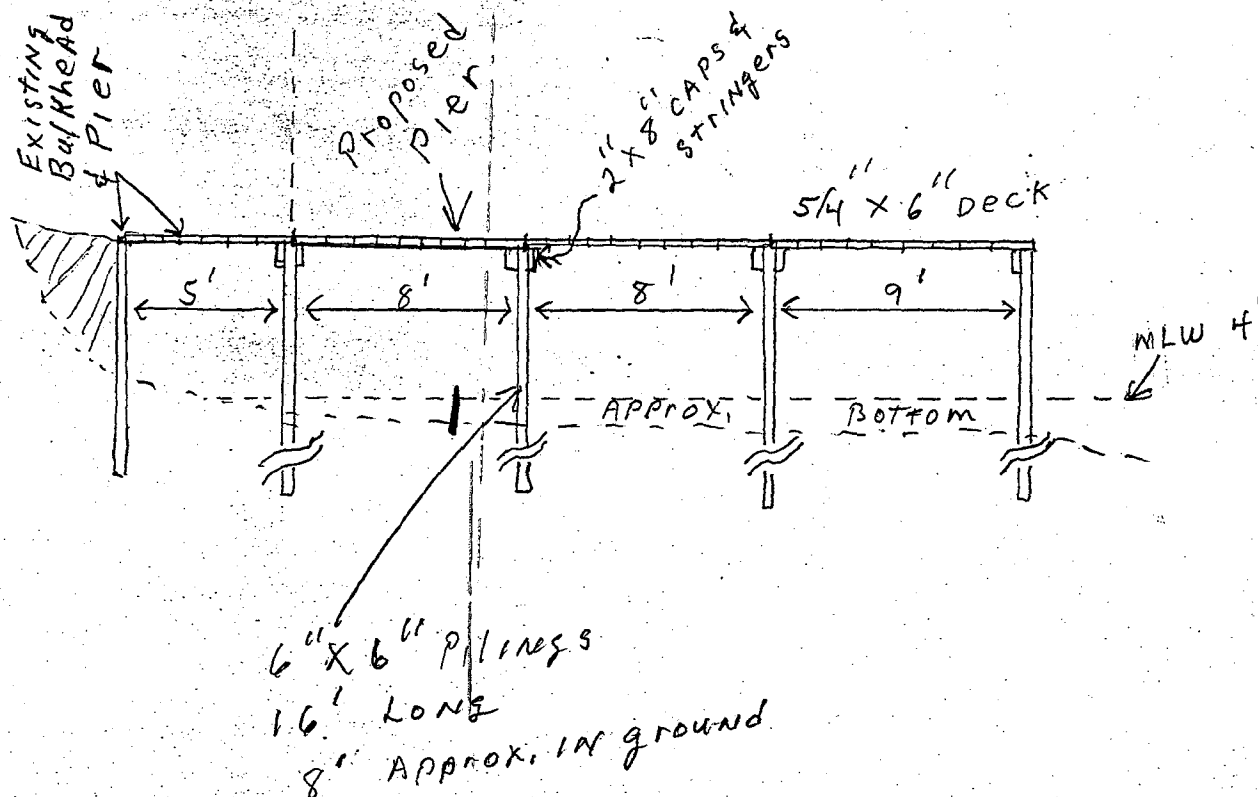 Existing
Bulkhead
& Pier
Proposed
Pier
2" x 8" CAPS &
Stringers
5/4" X 6" Deck
5'
8'
8'
9'
MLW 4
Approx. Bottom
6" X 6" Pilings
16' Long
8' Approx. in ground